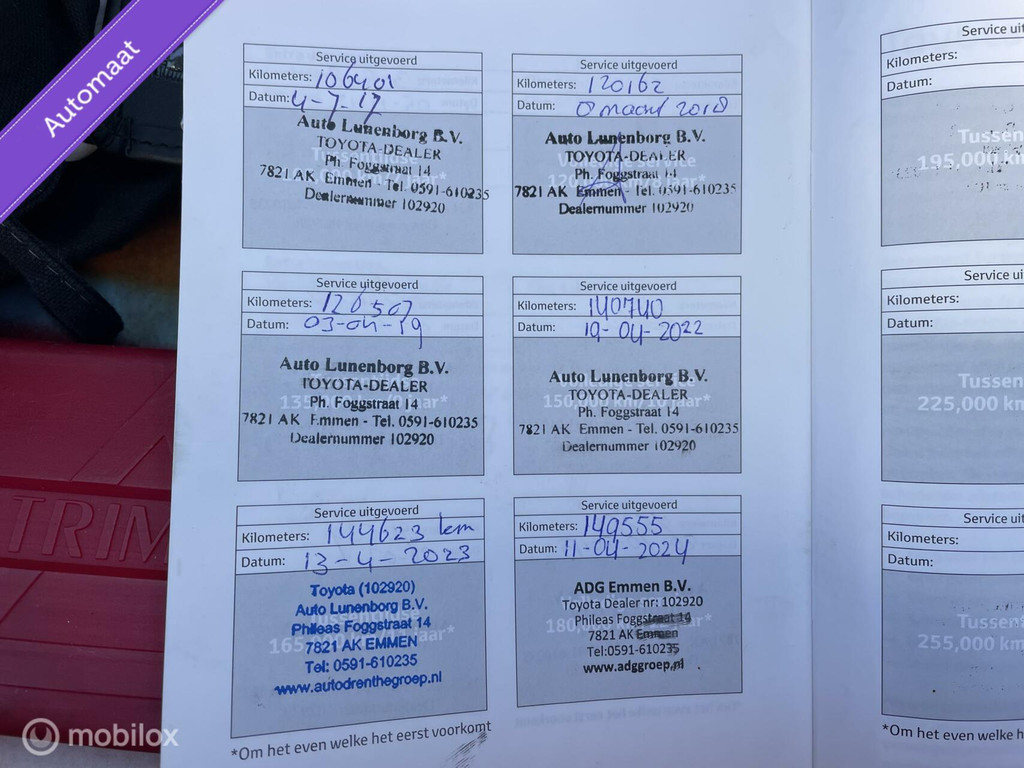 Automaat
Service uitgevoerd
Kilometers: 106401
Datum: 4-7-17
Auto Lunenborg B.V.
TOYOTA-DEALER
Ph. Foggstraat 14
7821 AK Emmen - Tel. 0591-610235
Dealernummer 102920
Service uitgevoerd
Kilometers: 120162
Datum: maart 2018
Auto Lunenborg B.V.
TOYOTA-DEALER
Ph. Foggstraat 14
7821 AK Emmen - Tel. 0591-610235
Dealernummer 102920
Service uitgevoerd
Kilometers: 126507
Datum: 03-04-19
Auto Lunenborg B.V.
TOYOTA-DEALER
135,000 km/9 jaar*
Ph. Foggstraat 14
7821 AK Emmen - Tel. 0591-610235
Dealernummer 102920
Service uitgevoerd
Kilometers: 140740
Datum: 19-04-2022
Auto Lunenborg B.V.
Volledige service
TOYOTA-DEALER
150,000 km/10 jaar*
Ph. Foggstraat 14
7821 AK Emmen - Tel. 0591-610235
Dealernummer 102920
Service uitgevoerd
Kilometers: 144623 km
Datum: 13-4-2023
Toyota (102920)
Auto Lunenborg B.V.
Phileas Foggstraat 14
7821 AK EMMEN
Tel: 0591-610235
www.autodrenthegroep.nl
Service uitgevoerd
Kilometers: 149555
Datum: 11-04-2024
ADG Emmen B.V.
Toyota Dealer nr: 102920
Phileas Foggstraat 14
7821 AK Emmen
Tel:0591-610235
www.adggroep.nl
*Om het even welke het eerst voorkomt
Service uit
Kilometers:
Datum:
Tussen
195,000 km
Service ui
Kilometers:
Datum:
Tussen
225,000 km
Service uit
Kilometers:
Datum:
Tussen
255,000 km
*Om het even welke h
TRIM
mobilox